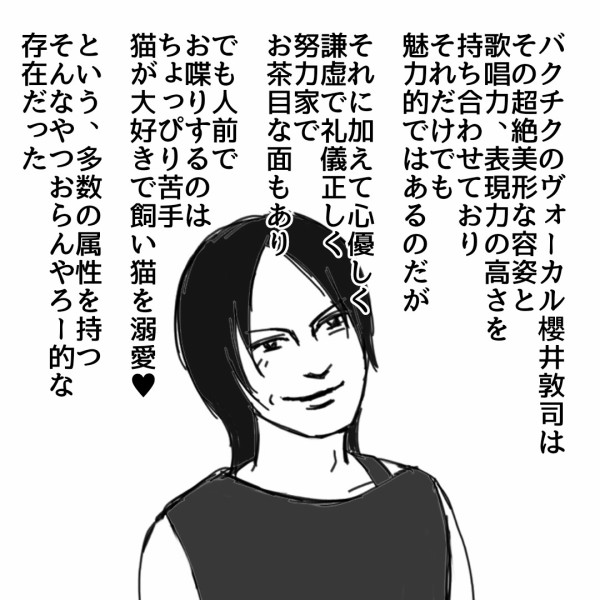 バクチクのヴォーカル櫻井敦司は
その超絶美形な容姿と
歌唱力、表現力の高さを
持ち合わせており
それだけでも
魅力的ではあるのだが
それに加えて心優しく
謙虚で礼儀正しく
努力家で
お茶目な面もあり
でも人前で
お喋りするのは
ちょっぴり苦手
猫が大好きで飼い猫を溺愛♥
という、多数の属性を持つ
そんなやつおらんやろー的な
存在だった